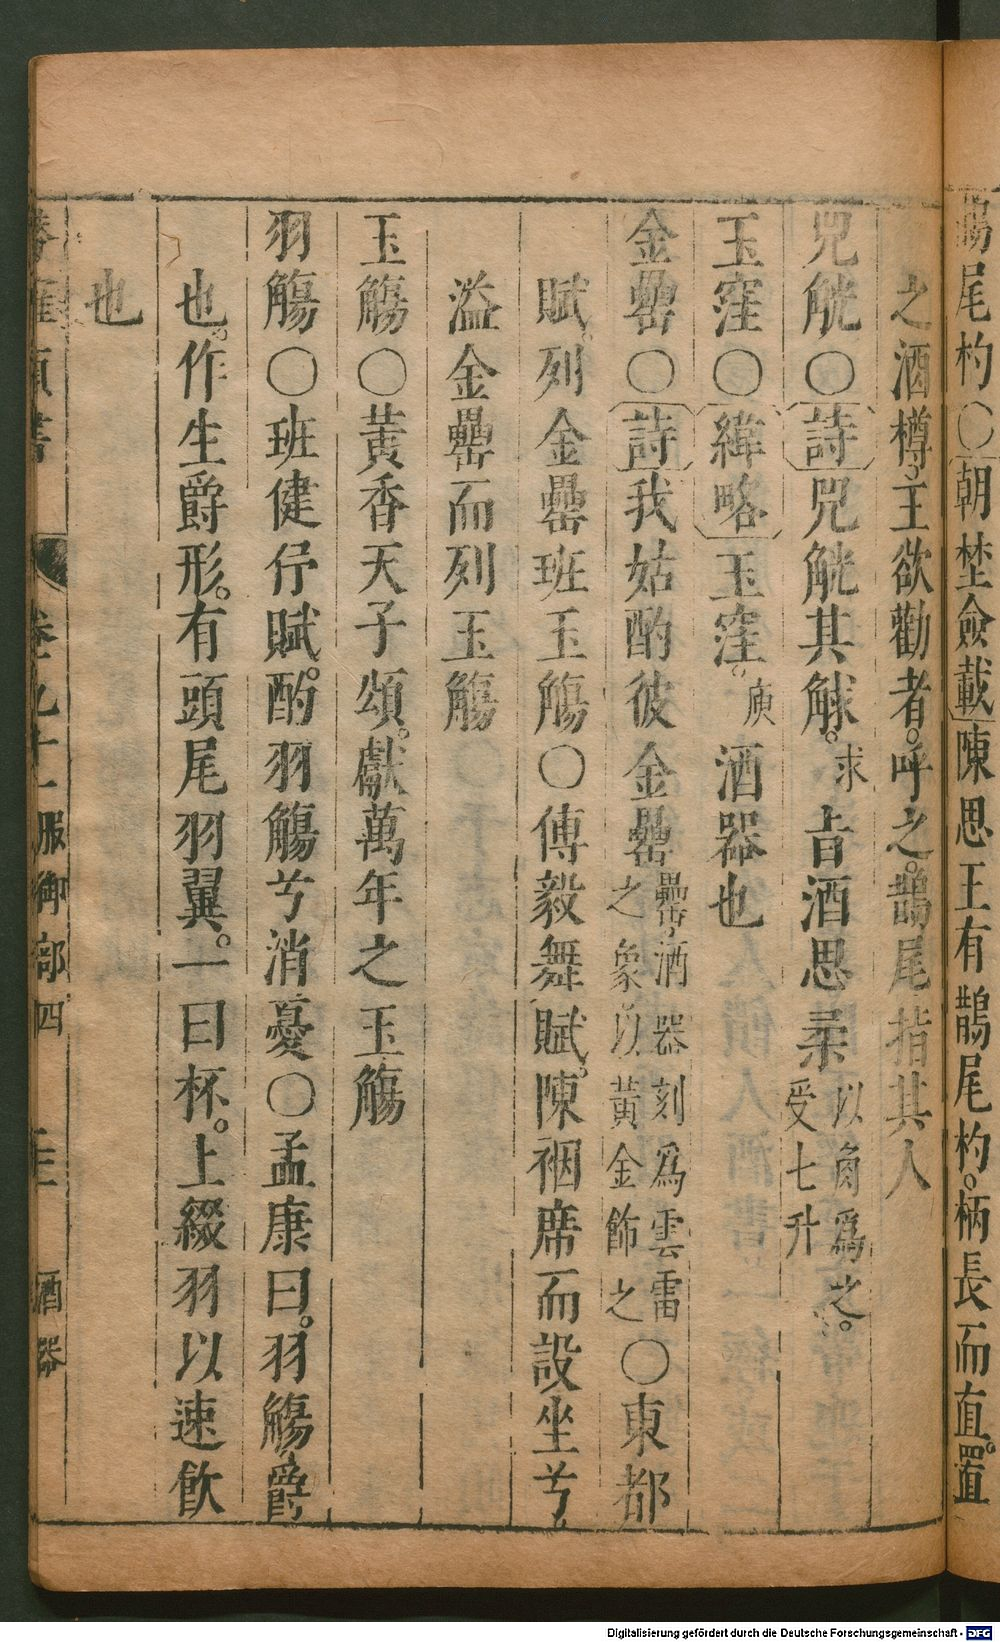 鵲尾杓○朝埜僉載陳思王有鵲尾杓。柄長而直。置
之酒樽。王欲勸者。呼之。鵲尾指其人
兕觥○詩兕觥其觩。求旨酒思柔以角爲之。受七升
玉窪○緯略玉窪。庾酒器也
金罍○詩我姑酌彼金罍罍。酒器刻爲雲雷之象以黃金飾之○東都
賦。列金罍班玉觴○傅毅舞賦。陳裀席而設坐兮
溢金罍而列玉觴
玉觴○黃香天子頌。獻萬年之玉觴
羽觴○班健伃賦。酌羽觴兮消憂○孟康曰。羽觴。爵
也。作生爵形。有頭尾羽翼。一曰杯。上綴羽以速飲
也
卷之九十一 服御部四 酒器
Digitalisierung gefördert durch die Deutsche Forschungsgemeinschaft - DFG